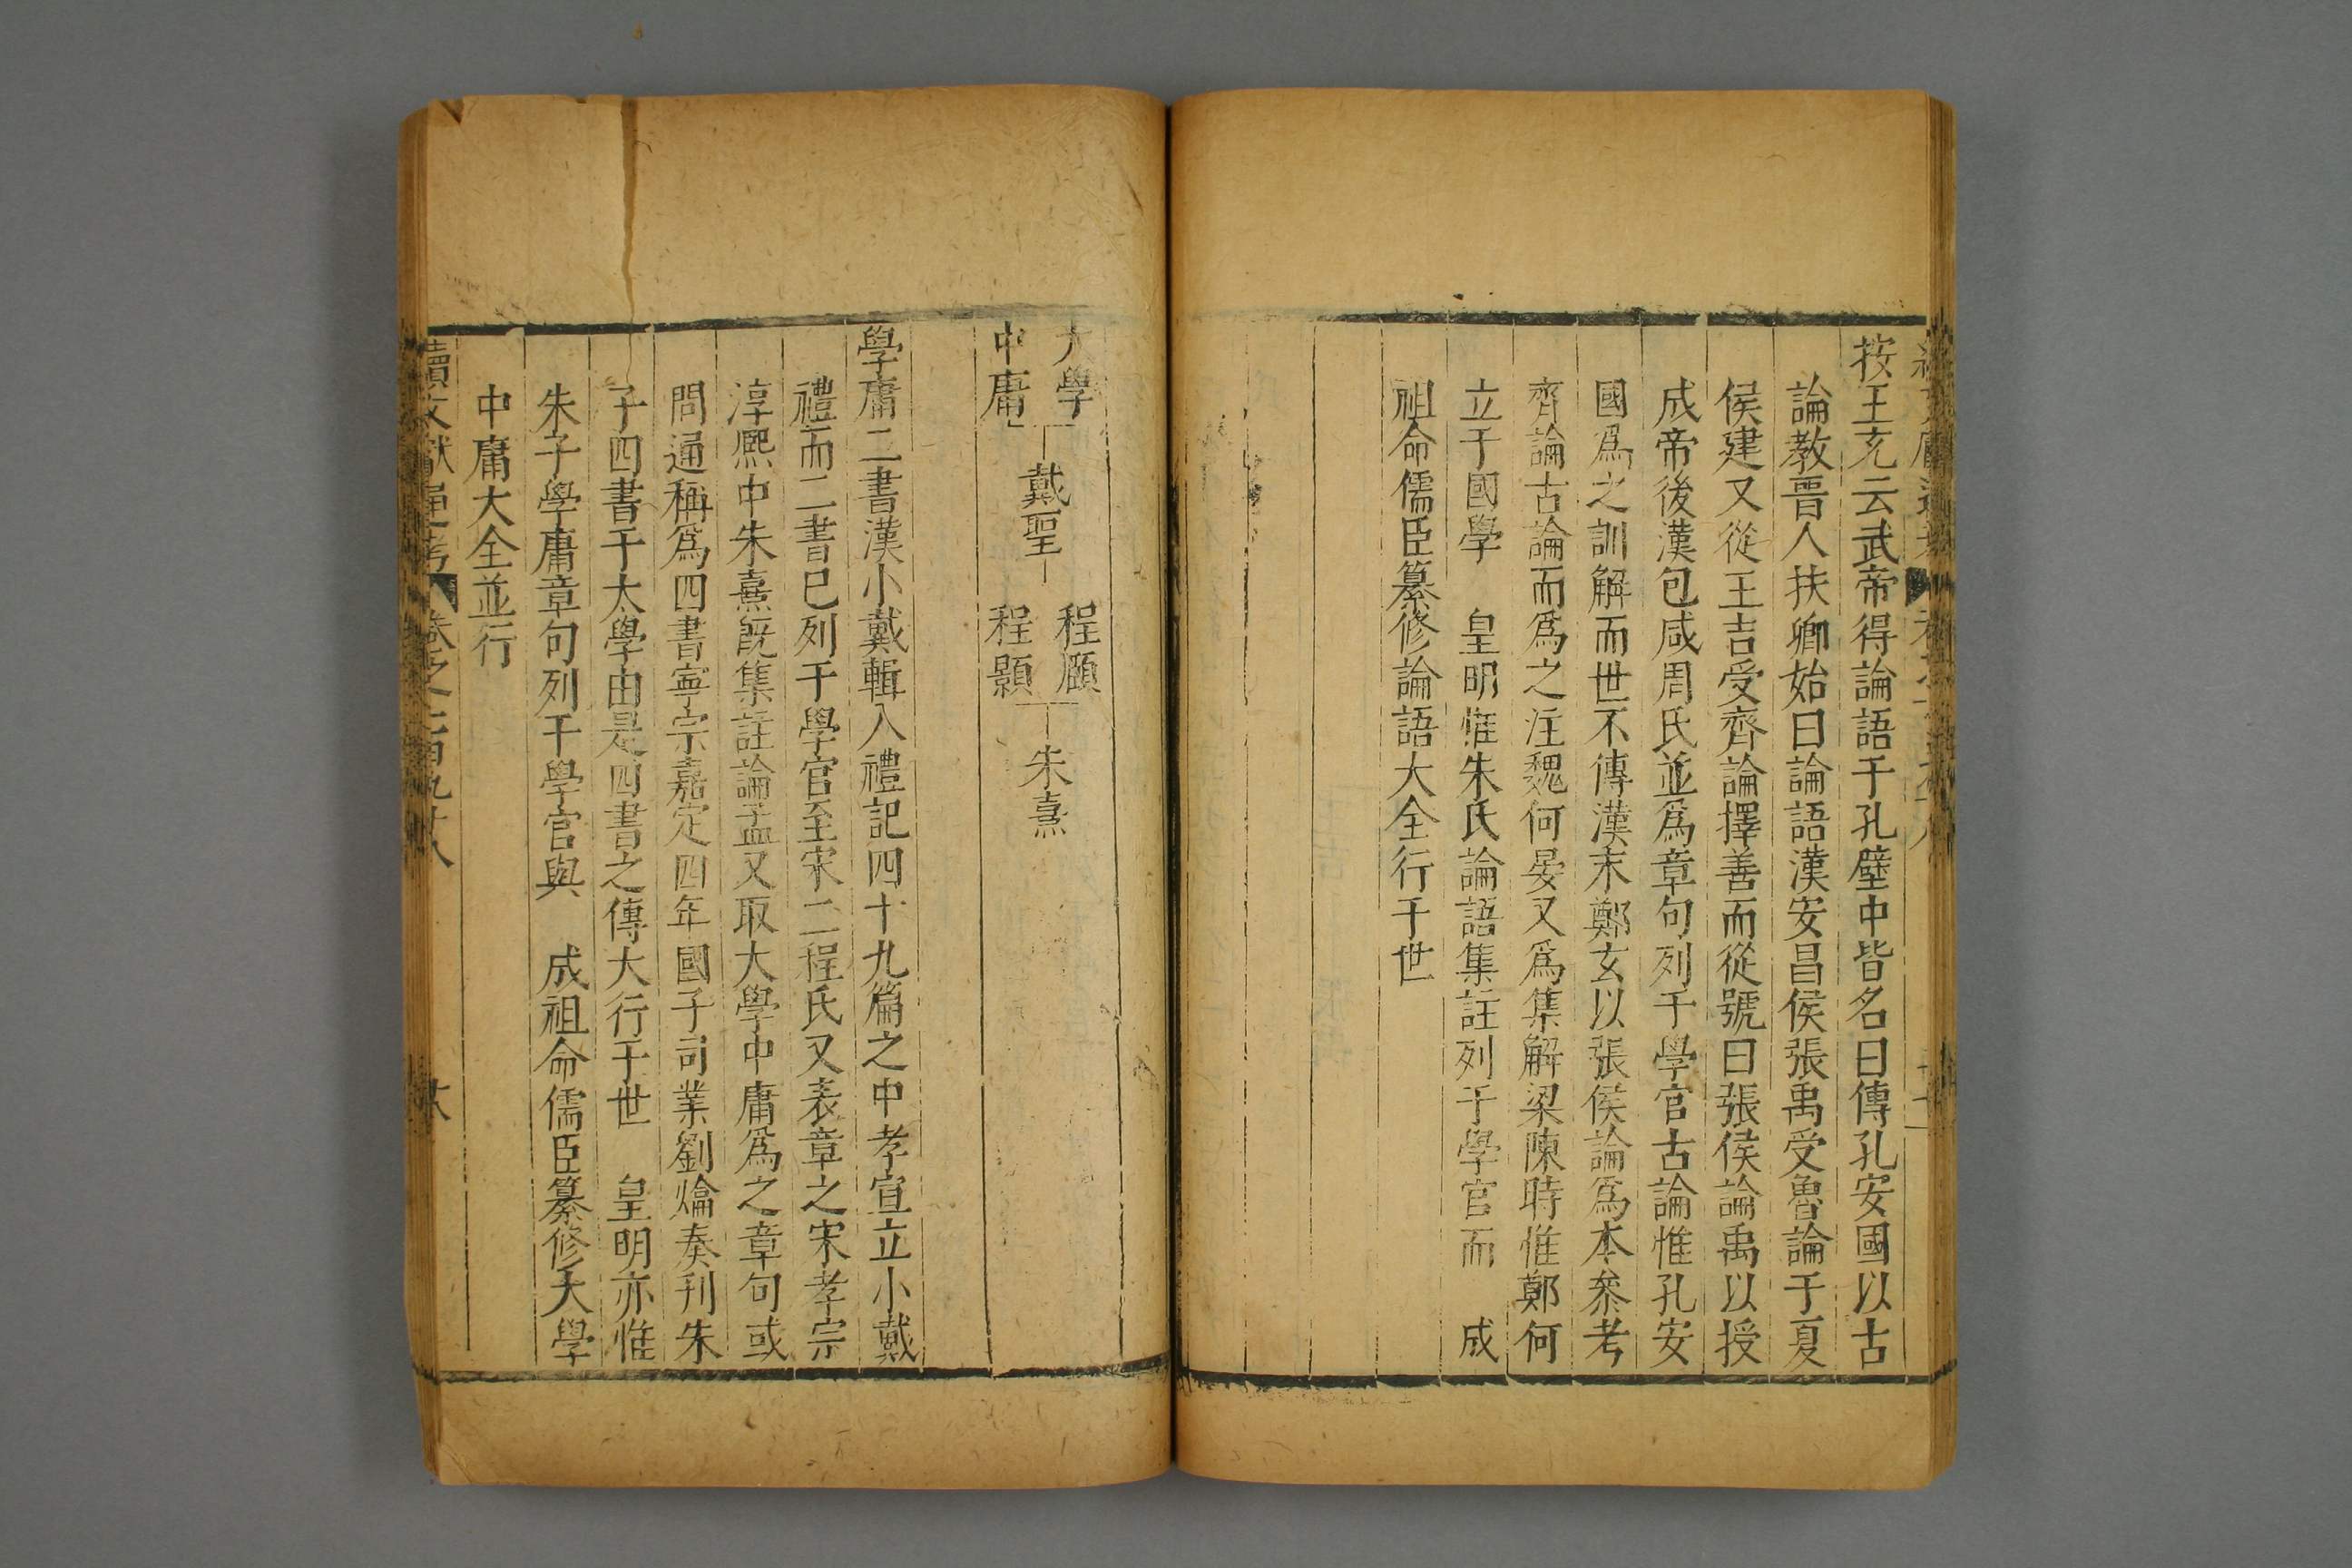 按王充云武帝得論語于孔壁中皆名曰傳孔安國以古
論教晋人扶卿始曰論語漢安昌侯張禹受魯論于夏
侯建又從王吉受齊論擇善而從號曰張侯論禹以授
成帝後漢包咸周氏並爲章句列于學官古論惟孔安
國爲之訓解而世不傳漢末鄭玄以張侯論爲本叅考
齊論古論而爲之注魏何晏又爲集解梁陳時惟鄭何
立于國學 皇明惟朱氏論語集註列于學官而 成
祖命儒臣纂修論語大全行于世
大學
中庸
戴聖
程頤
程顥
朱熹
學庸二書漢小戴輯入禮記四十九篇之中孝宣立小戴
禮而二書已列于學官至宋二程氏又表章之宋孝宗
淳熈中朱熹旣集註論孟又取大學中庸爲之章句或
問通稱爲四書寧宗嘉定四年國子司業劉爚奏刊朱
子四書于太學由是四書之傳大行于世 皇明亦惟
朱子學庸章句列于學官與 成祖命儒臣纂修大學
中庸大全並行
續文獻通考 卷之一百九十八